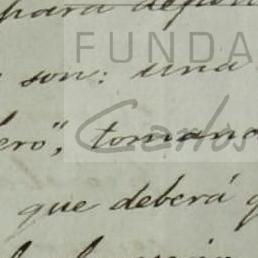 para depon
FUNDA
son: una
ero", tomand
Carlos
que deberá q